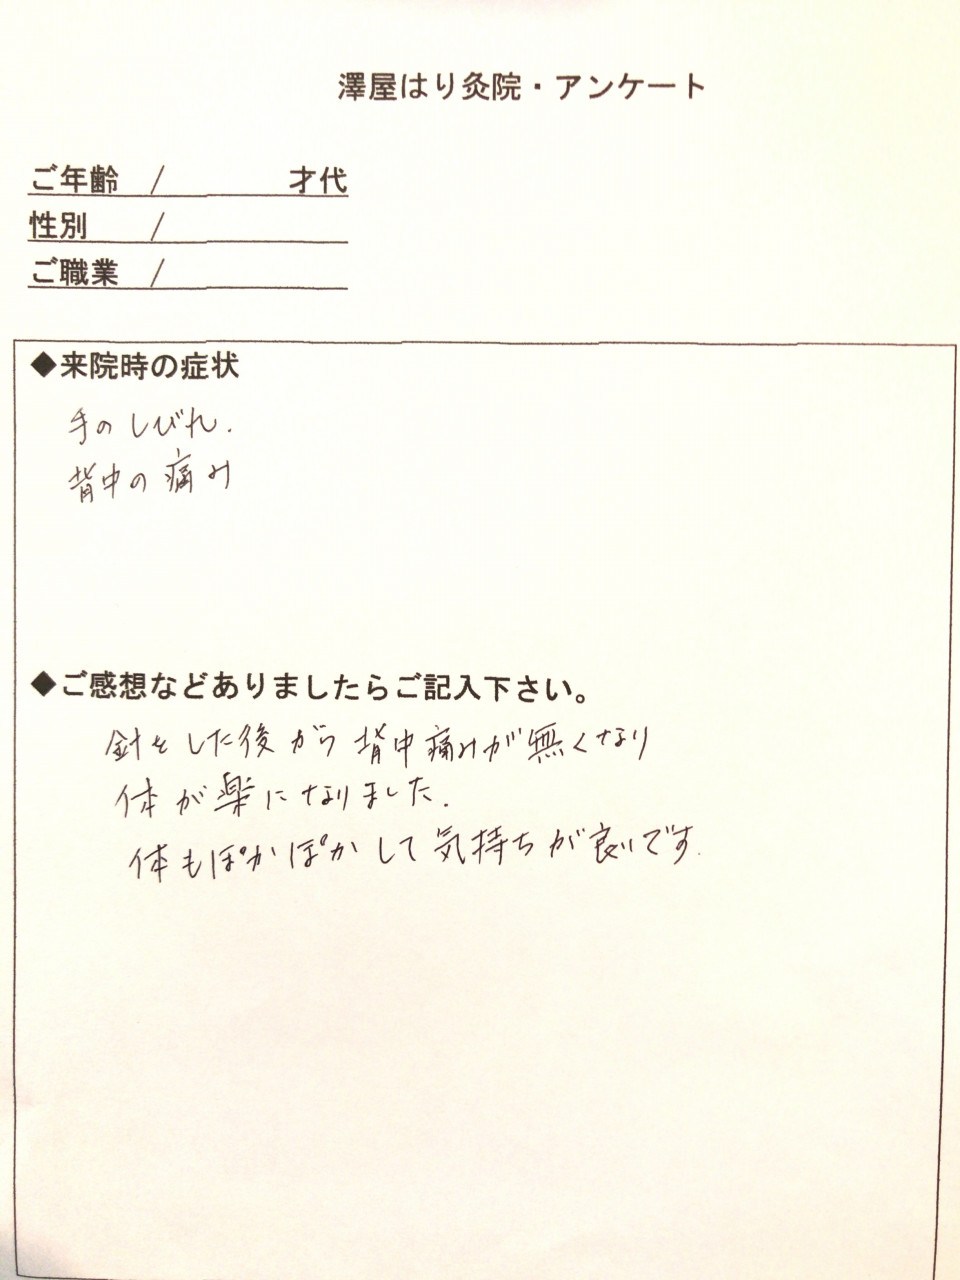 澤屋はり灸院・アンケート
ご年齢 / 才代
性別 /
ご職業 /
◆来院時の症状
手のしびれ.
背中の痛み
◆ご感想などありましたらご記入下さい。
針をした後から背中痛みが無くなり
体が楽になりました.
体もぽかぽかして気持ちが良いです.